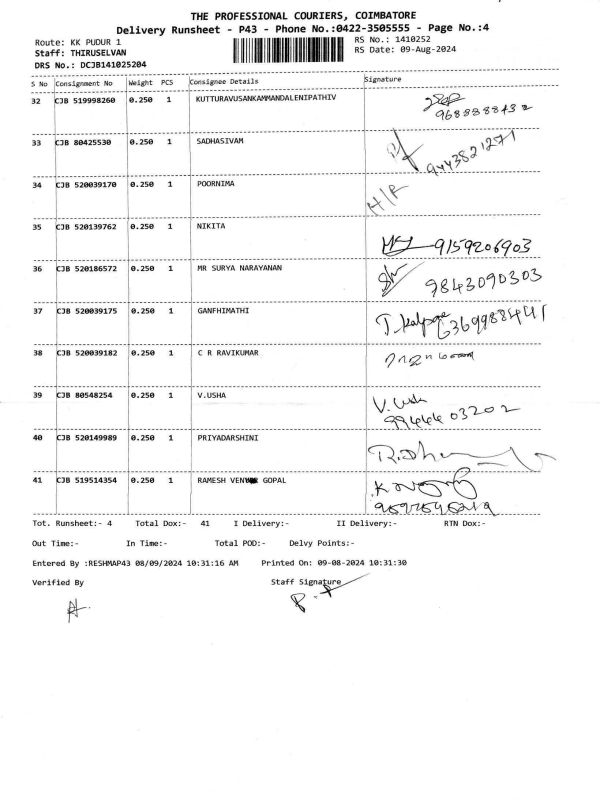 THE PROFESSIONAL COURIERS, COIMBATORE
Delivery Runsheet - P43 - Phone No.:0422-3505555 - Page No.:4
Route: KK PUDUR 1
RS No.: 1410252
Staff: THIRUSELVAN
RS Date: 09-Aug-2024
DRS No.: DCJB141025204
S No Consignment No Weight PCS Consignee Details Signature
32 CJB 519998260 0.250 1 KUTTURAVUSANKAMMANDALENIPATHIV
33 CJB 80425530 0.250 1 SADHASIVAM
9443821271
34 CJB 520039170 0.250 1 POORNIMA
H/R
35 CJB 520139762 0.250 1 NIKITA
9159206903
36 CJB 520186572 0.250 1 MR SURYA NARAYANAN
9843090303
37 CJB 520039175 0.250 1 GANFHIMATHI
38 CJB 520039182 0.250 1 C R RAVIKUMAR
39 CJB 80548254 0.250 1 V.USHA
V. Usha
99444 03202
40 CJB 520149989 0.250 1 PRIYADARSHINI
41 CJB 519514354 0.250 1 RAMESH GOPAL
Tot. Runsheet:- 4 Total Dox:- 41 I Delivery:- II Delivery:- RTN Dox:-
Out Time:- In Time:- Total POD:- Delvy Points:-
Entered By :RESHMAP43 08/09/2024 10:31:16 AM Printed On: 09-08-2024 10:31:30
Verified By Staff Signature